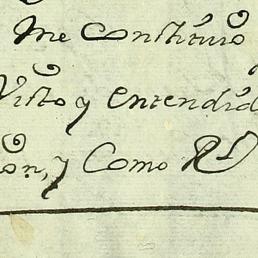 me Constituio
Visto y entendid
on, y Como R